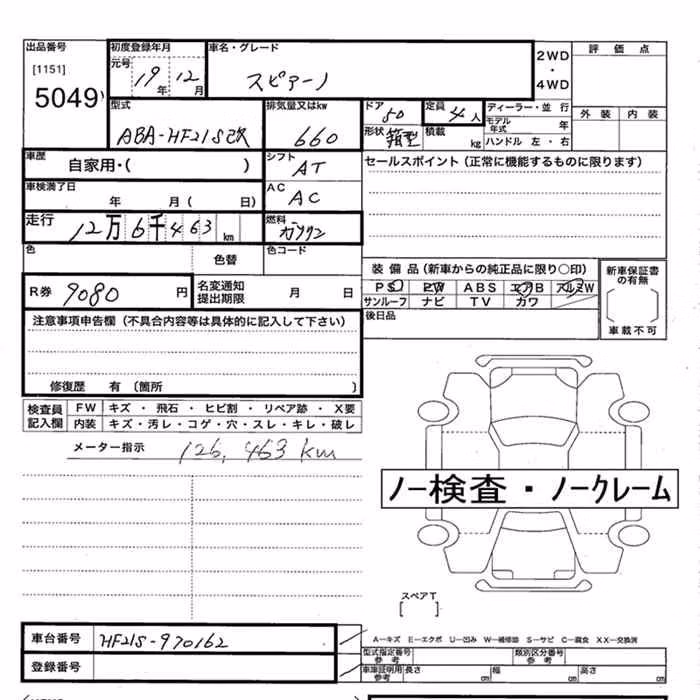 出品番号
[1151]
5049
初度登録年月
元号
19年 12月
車名・グレード
スピアーノ
2WD
・
4WD
評価点
外装 内装
型式
ABA-HF21S改
排気量又はkw
660
ドア
50
定員
4人
形状
箱型
積載
kg
ディーラー・並 行
モデル年式 年
ハンドル 左・右
車歴
自家用・( )
シフト
AT
セールスポイント(正常に機能するものに限ります)
車検満了日
年 月( 日)
AC
AC
走行
12万6千463 km
燃料
ガソリン
色
色替
色コード
装備品(新車からの純正品に限り○印)
PS PW ABS エアB アルミW
サンルーフ ナビ TV カワ
新車保証書の有無
車載不可
R券
9080円
名変通知
提出期限
月 日
後日品
注意事項申告欄(不具合内容等は具体的に記入して下さい)
修復歴 有 〔箇所 〕
検査員
記入欄
FW キズ・飛石・ヒビ割・リペア跡・X要
内装 キズ・汚レ・コゲ・穴・スレ・キレ・破レ
メーター指示
126,463 km
ノー検査・ノークレーム
スペアT
[ ]
車台番号
HF21S-970162
A−キズ E−エクボ U−凹み W−補修跡 S−サビ C−腐食 XX−交換済
登録番号
型式指定番号
参考
類別区分番号
参考
車庫証明用
参考
長さ cm 幅 cm 高さ cm